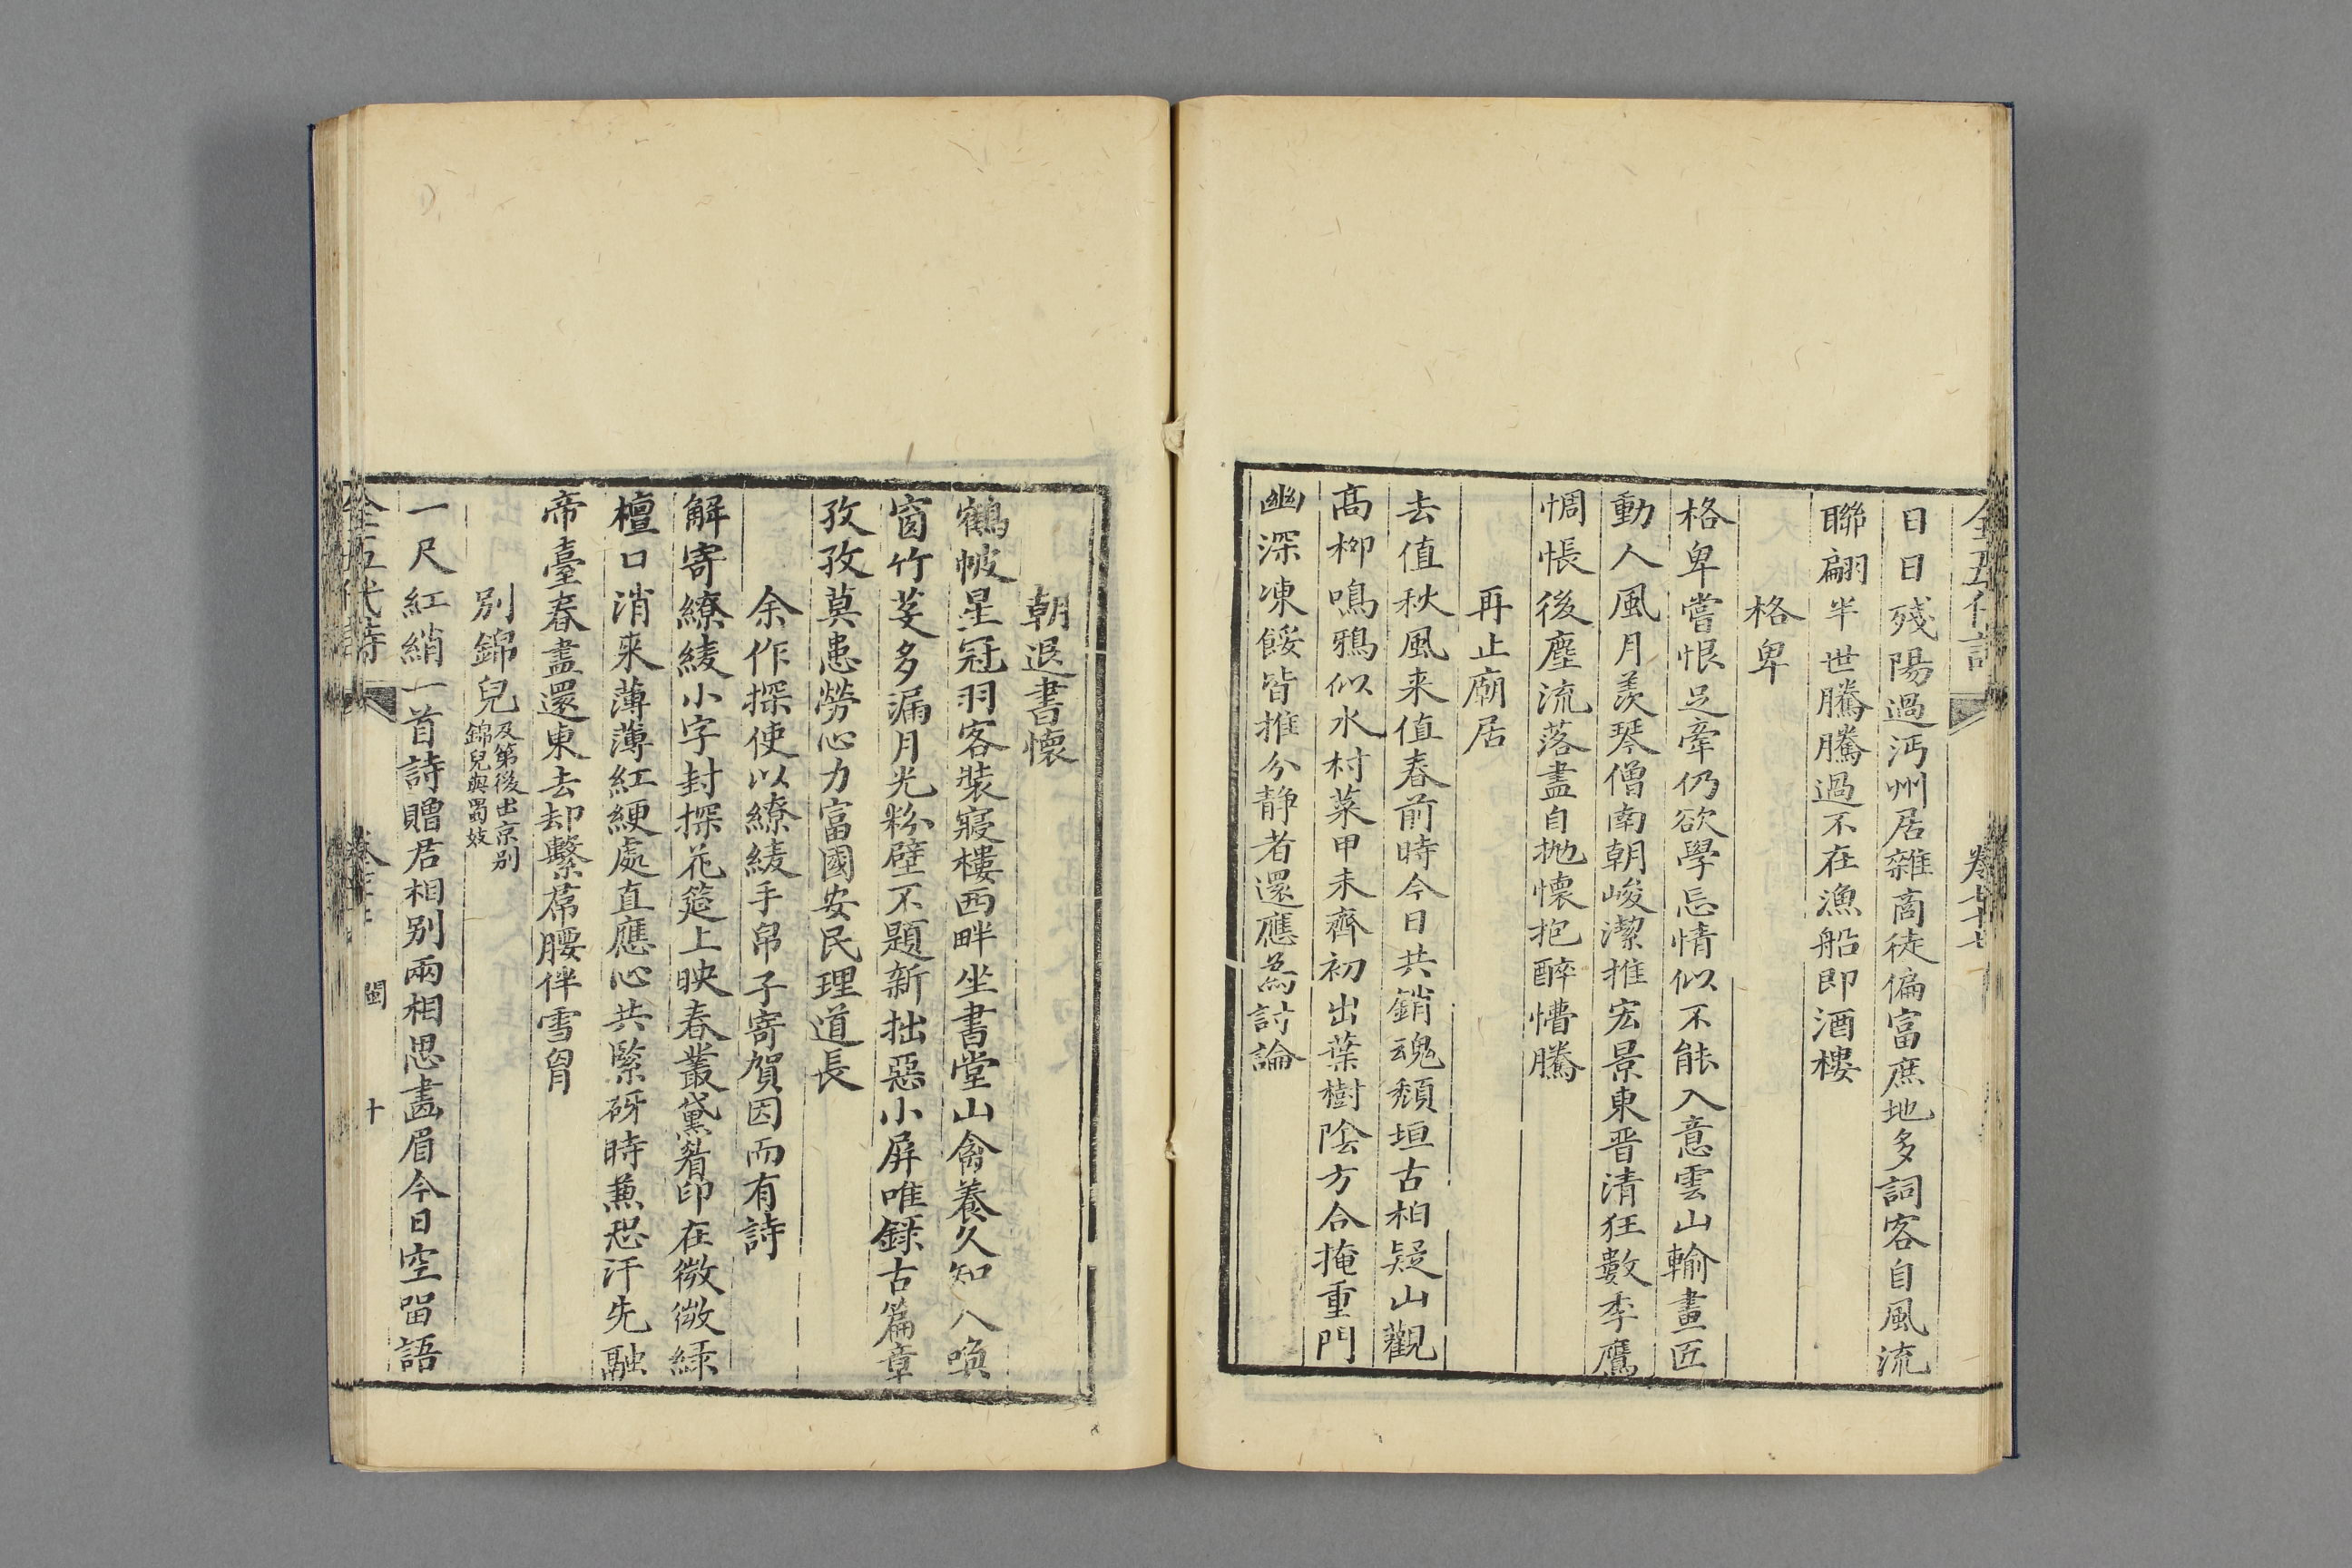 全五代詩
卷七十七
日日殘陽過沔州居雜商徒偏富庶地多詞客自風流
聯翩半世騰騰過不在漁船即酒樓
格卑
格卑嘗恨足牽仍欲學忘情似不能入意雲山輸畫匠
動人風月羨琴僧南朝峻潔推宏景東晉清狂數季鷹
惆悵後塵流落盡自抛懷抱醉懵騰
再止廟居
去值秋風来值春前時今日共銷魂頹垣古柏疑山觀
高柳鳴鴉似水村菜甲未齊初出葉樹陰方合掩重門
幽深凍餒皆推分静者還應爲討論
朝退書懷
鶴帔星冠羽客裝寢樓西畔坐書堂山禽養久知人喚
窗竹芟多漏月光粉壁不題新拙惡小屏唯錄古篇章
孜孜莫患勞心力富國安民理道長
余作探使以繚綾手帛子寄賀因而有詩
解寄繚綾小字封探花筵上映春叢黛眉印在微微綠
檀口消来薄薄紅緶處直應心共緊砑時兼恐汗先融
帝臺春盡還東去却繫裙腰伴雪胷
別錦兒
及第後出京別
錦兒與蜀妓
一尺紅綃一首詩贈君相別兩相思畫眉今日空畱語
全五代詩
閩
十